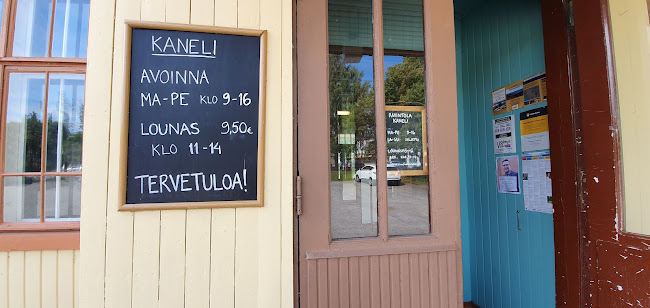 KANELI
AVOINNA
MA-PE KLO 9-16
LOUNAS 9,50€
KLO 11-14
TERVETULOA!
RAVINTOLA
KANELI
MA-PE 9-16